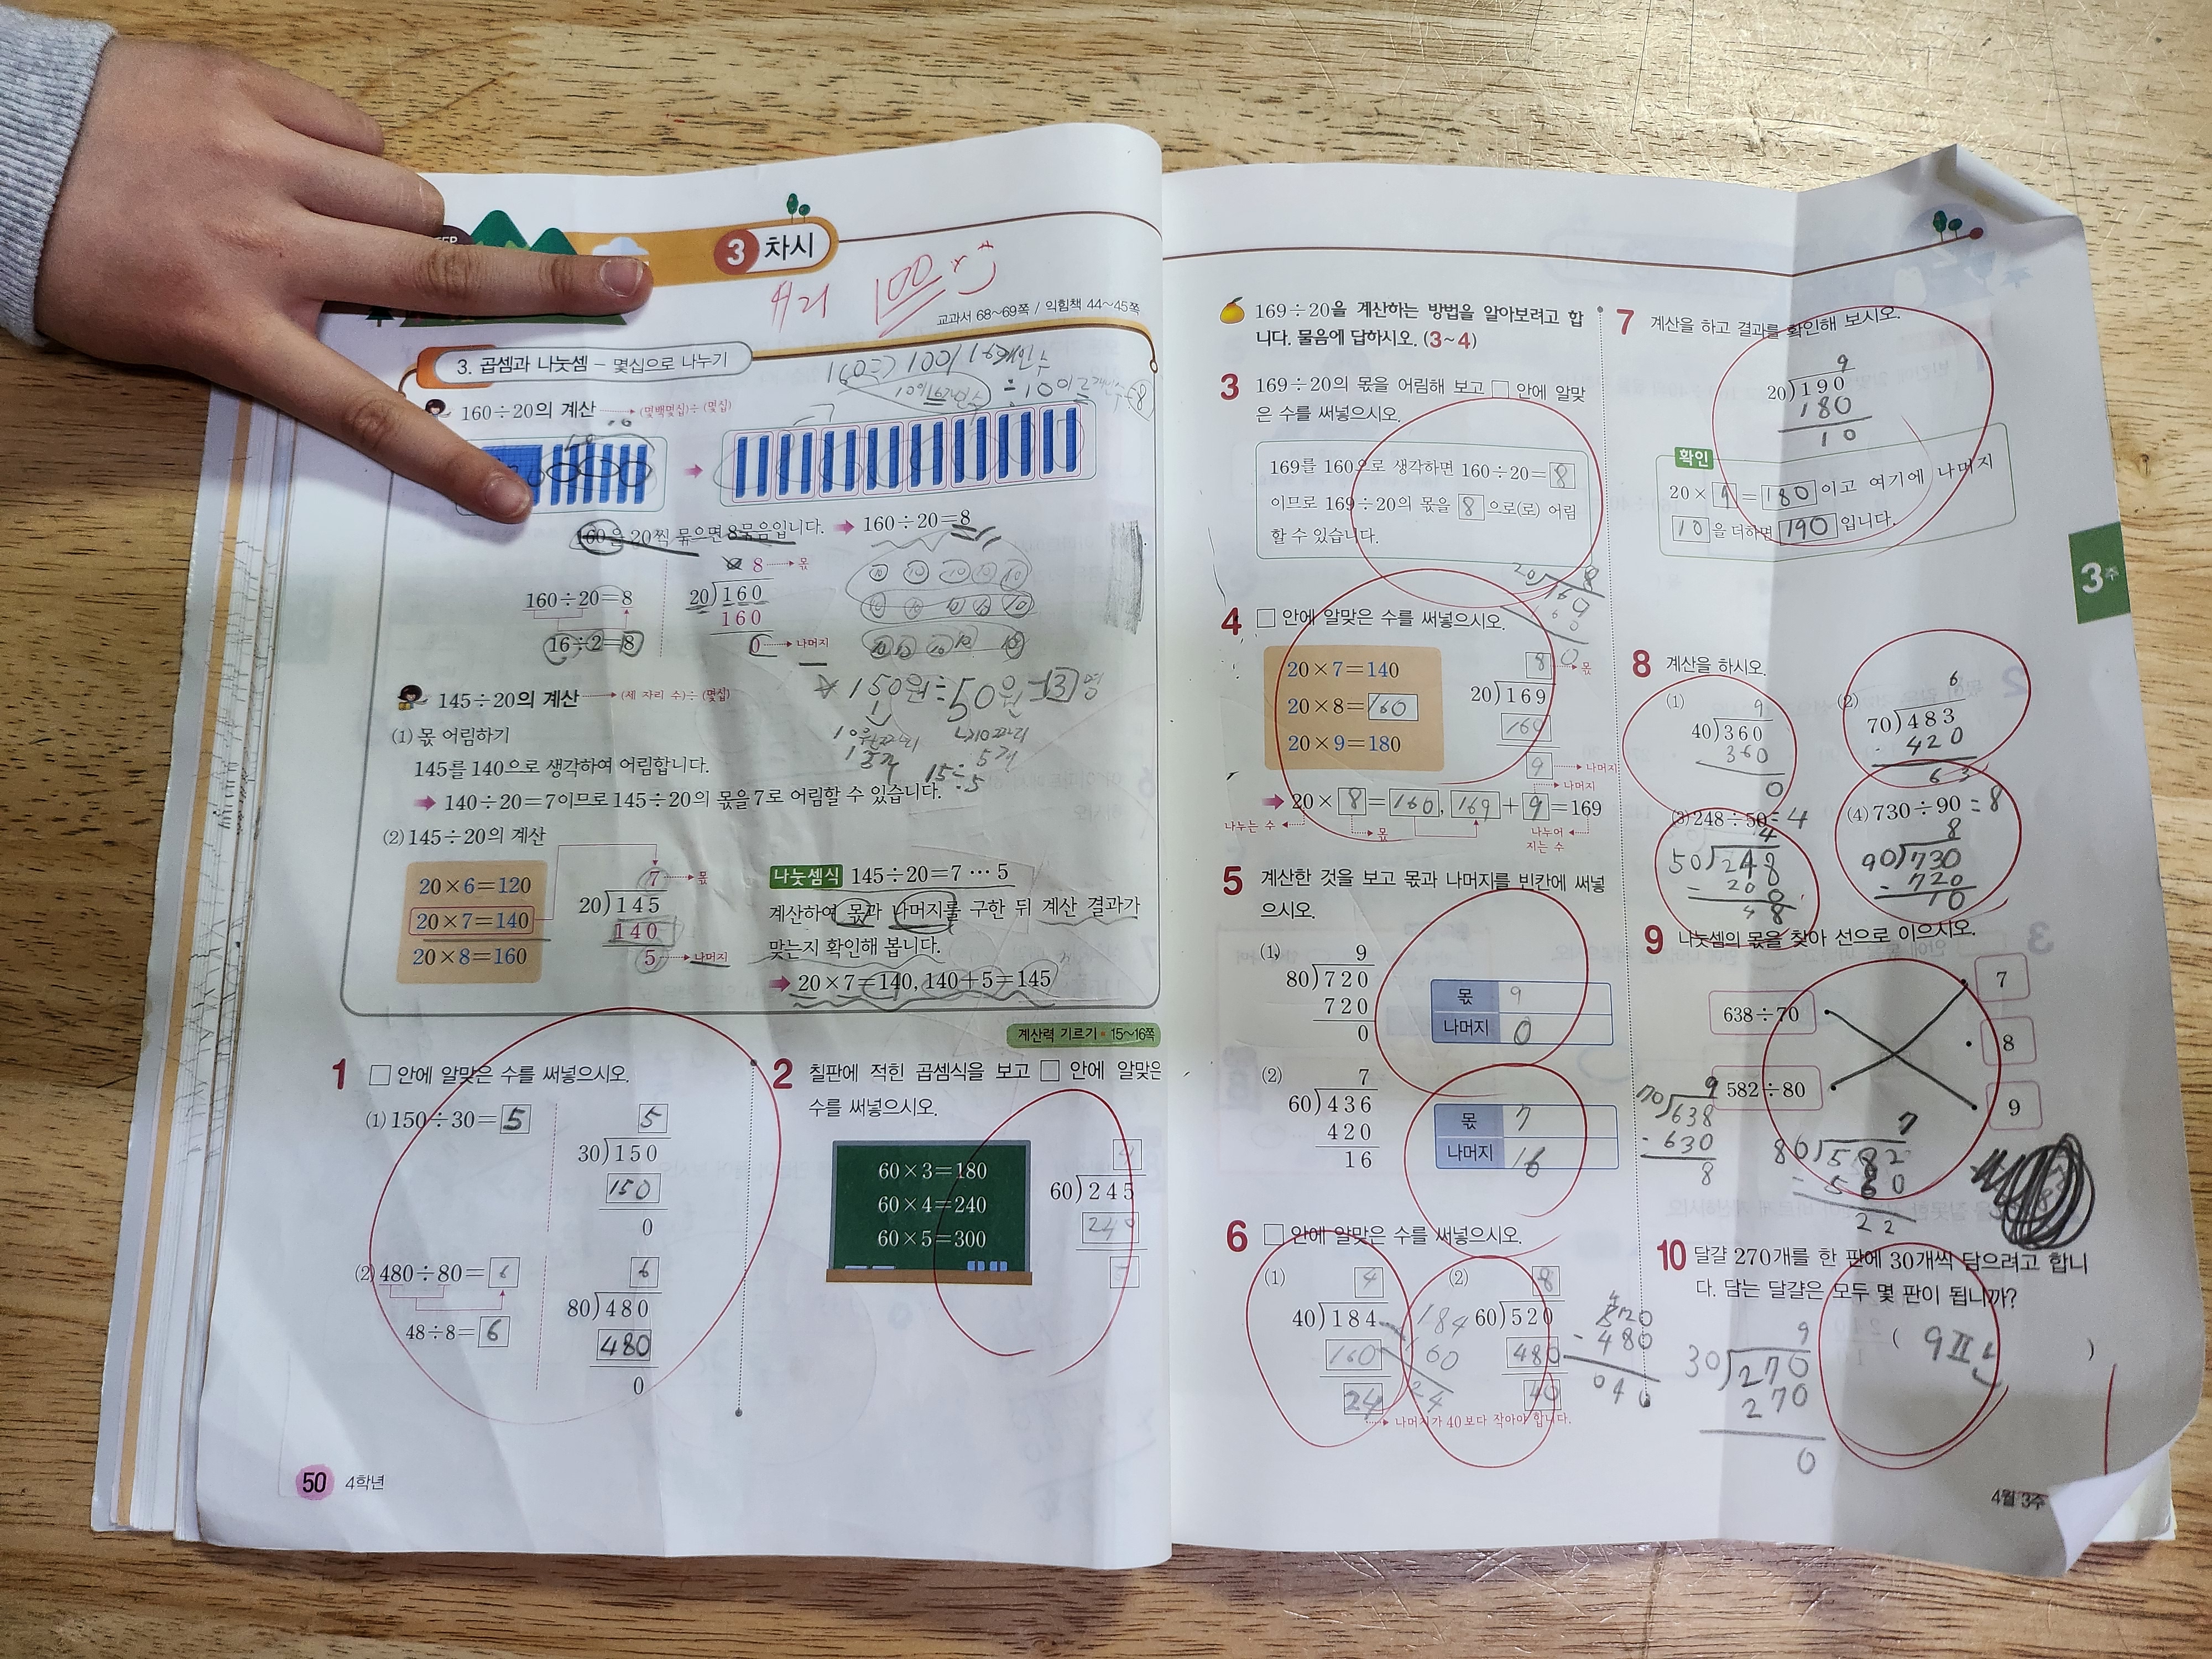 3 차시
100
교과서 68~69쪽 / 익힘책 44~45쪽
3. 곱셈과 나눗셈 - 몇십으로 나누기
160÷20의 계산 (몇백몇십)÷(몇십)
160을 20씩 묶으면 8묶음입니다. 160÷20=8
8 몫
160÷20=8
20)160
160
16÷2=8
0 나머지
145÷20의 계산 (세 자리 수)÷(몇십)
150원÷50원=3명
(1) 몫 어림하기
145를 140으로 생각하여 어림합니다.
15÷5
140÷20=7이므로 145÷20의 몫을 7로 어림할 수 있습니다.
(2) 145÷20의 계산
20×6=120
20×7=140
20×8=160
7 몫
20)145
140
5 나머지
나눗셈식 145÷20=7…5
계산하여 몫과 나머지를 구한 뒤 계산 결과가
맞는지 확인해 봅니다.
20×7=140, 140+5=145
계산력 기르기 15~16쪽
1 □ 안에 알맞은 수를 써넣으시오.
(1) 150÷30=5
5
30)150
150
0
(2) 480÷80=6
48÷8=6
6
80)480
480
0
2 칠판에 적힌 곱셈식을 보고 □ 안에 알맞은
수를 써넣으시오.
60×3=180
60×4=240
60×5=300
4
60)245
240
5
50 4학년
169÷20을 계산하는 방법을 알아보려고 합
니다. 물음에 답하시오. (3~4)
3 169÷20의 몫을 어림해 보고 □ 안에 알맞
은 수를 써넣으시오.
169를 160으로 생각하면 160÷20=8
이므로 169÷20의 몫을 8 으로(로) 어림
할 수 있습니다.
4 □ 안에 알맞은 수를 써넣으시오.
20×7=140
20×8=160
20×9=180
8 몫
20)169
160
9 나머지
나머지
20×8=160, 169+9=169
나누는 수
몫
나누어
지는 수
5 계산한 것을 보고 몫과 나머지를 빈칸에 써넣
으시오.
(1)
9
80)720
720
0
몫 9
나머지 0
(2)
7
60)436
420
16
몫 7
나머지 16
6 □ 안에 알맞은 수를 써넣으시오.
(1)
4
40)184
160
24
184
160
24
나머지가 40보다 작아야 합니다.
(2)
8
60)520
480
40
520
-480
040
7 계산을 하고 결과를 확인해 보시오.
9
20)190
180
10
확인
20×9=180이고 여기에 나머지
10을 더하면 190입니다.
3주
8 계산을 하시오.
(1)
9
40)360
360
0
(2)
6
70)483
-420
63
(3) 248÷50=4
4
50)248
-200
48
(4) 730÷90=8
8
90)730
-720
10
9 나눗셈의 몫을 찾아 선으로 이으시오.
638÷70
582÷80
7
8
9
9
70)638
-630
8
7
80)582
-560
22
10 달걀 270개를 한 판에 30개씩 담으려고 합니
다. 담는 달걀은 모두 몇 판이 됩니까?
( 9판 )
9
30)270
270
0
4월 3주